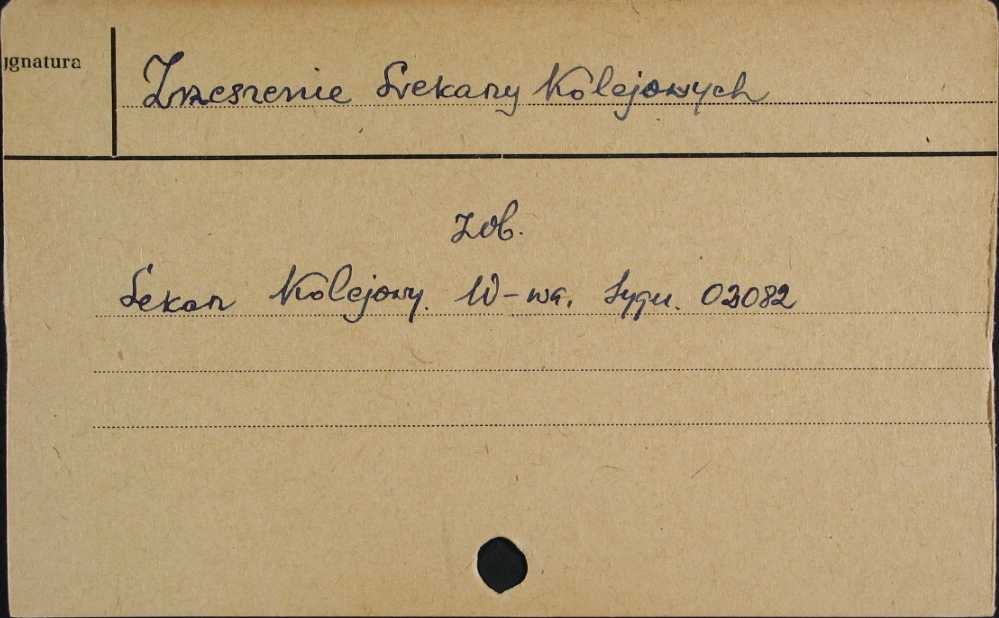 ygnatura
Zrzeszenie Lekarzy Kolejowych
zob.
Lekarz Kolejowy. W-wa. Sygn. 03082